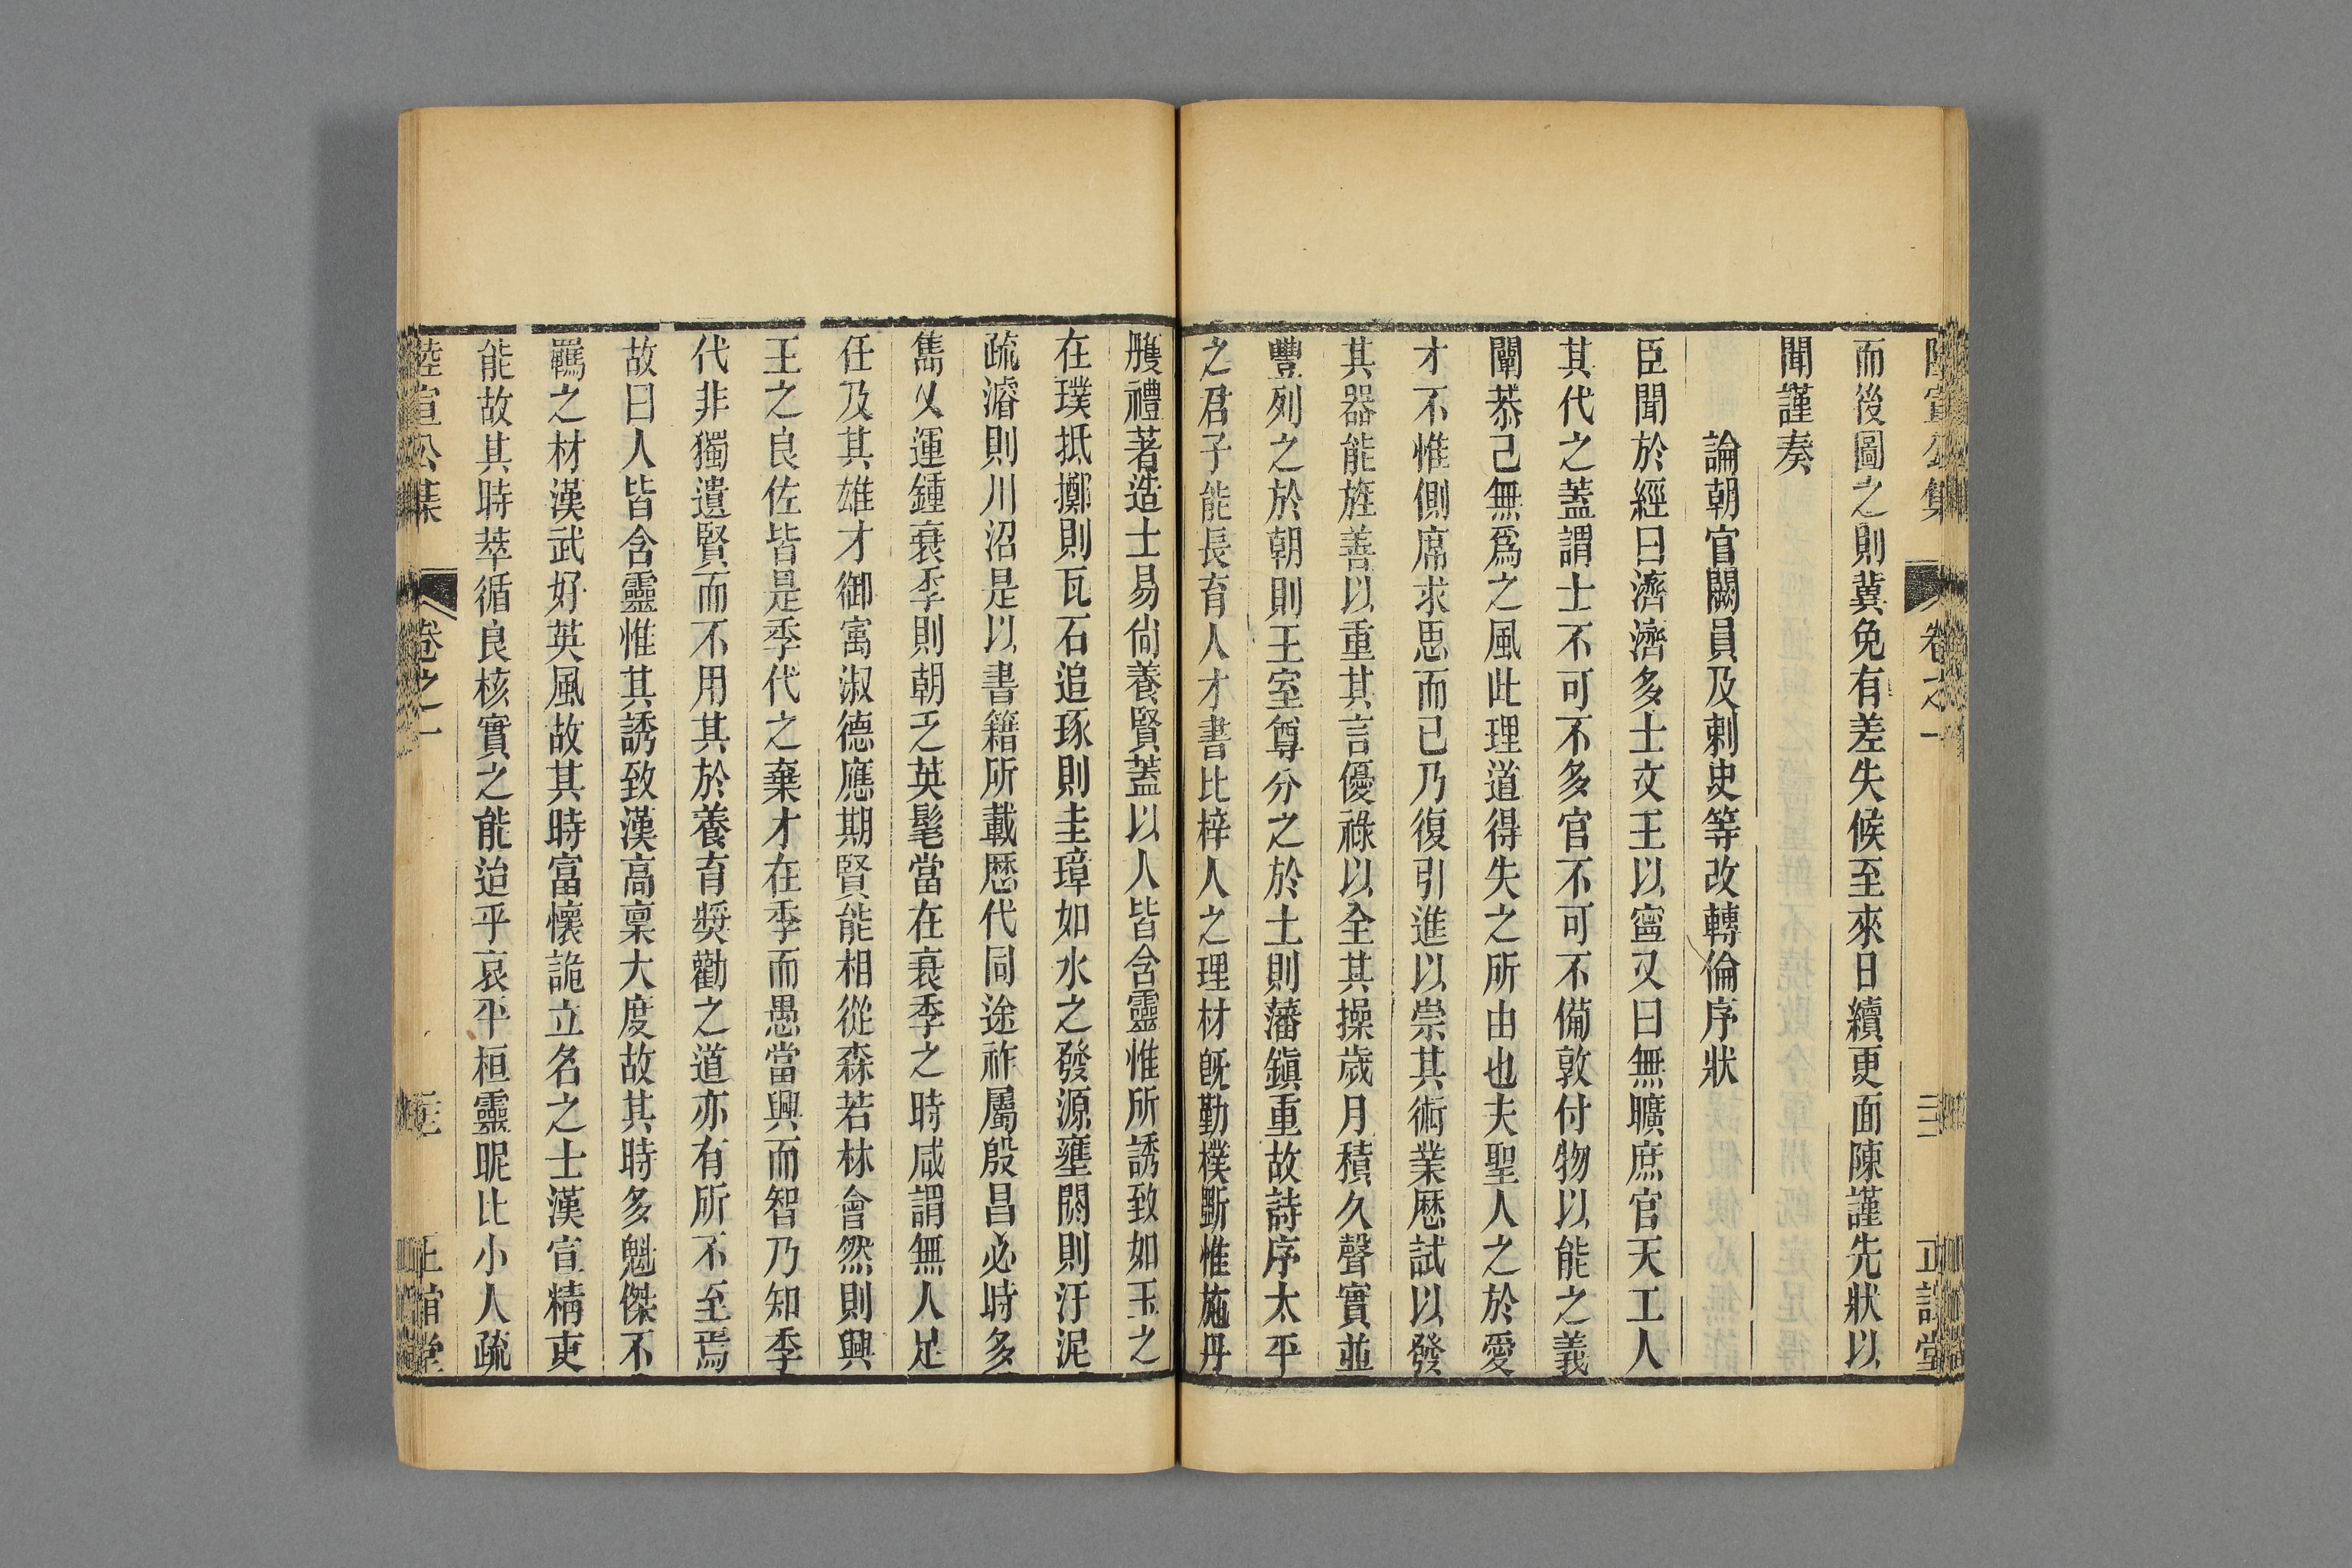 陸宣公集 卷之一 三二 正誼堂
而後圖之則冀免有差失候至來日續更面陳謹先狀以
聞謹奏
論朝官闕員及刺史等改轉倫序狀
臣聞於經曰濟濟多士文王以寧又曰無曠庶官天工人
其代之蓋謂士不可不多官不可不備敦付物以能之義
闡恭己無爲之風此理道得失之所由也夫聖人之於愛
才不惟側席求思而已乃復引進以崇其術業歷試以發
其器能旌善以重其言優祿以全其操歲月積久聲實並
豐列之於朝則王室尊分之於土則藩鎭重故詩序太平
之君子能長育人才書比梓人之理材旣勤樸斲惟施丹
雘禮著造士易尙養賢蓋以人皆含靈惟所誘致如玉之
在璞抵擲則瓦石追琢則圭璋如水之發源壅閼則汙泥
疏濬則川沼是以書籍所載歷代同途祚屬殷昌必時多
雋乂運鍾衰季則朝乏英髦當在衰季之時咸謂無人足
任及其雄才御寓淑德應期賢能相從森若林會然則興
王之良佐皆是季代之棄才在季而愚當興而智乃知季
代非獨遺賢而不用其於養育獎勸之道亦有所不至焉
故曰人皆含靈惟其誘致漢高稟大度故其時多魁傑不
羈之材漢武好英風故其時富懷詭立名之士漢宣精吏
能故其時萃循良核實之能迨乎哀平桓靈昵比小人疏
陸宣公集 卷之一 正誼堂